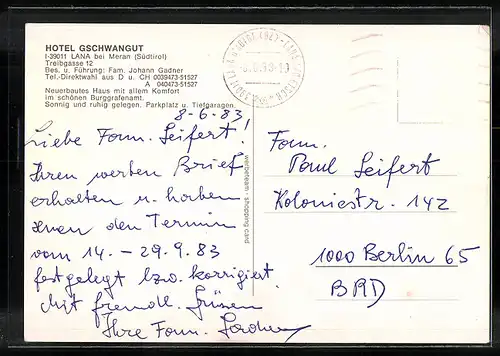 HOTEL GSCHWANGUT
I-39011 LANA bei Meran (Südtirol)
Treibgasse 12
Bes. u. Führung: Fam. Johann Gadner
Tel.-Direktwahl aus D u. CH 0039473-51527
A 040473-51527
Neuerbautes Haus mit allem Komfort
im schönen Burggrafenamt.
Sonnig und ruhig gelegen. Parkplatz u. Tiefgaragen.
8-6-83
Liebe Fam. Seifert!
Ihren werten Brief
erhalten u. haben
Ihnen den Termin
vom 14. - 29.9.83
festgelegt bzw. korrigiert.
Mit freundl. Grüssen
Ihre Fam. Gadner
werbeteam - shopping card
Fam.
Paul Seifert
Koloniestr. 142
1000 Berlin 65
BRD